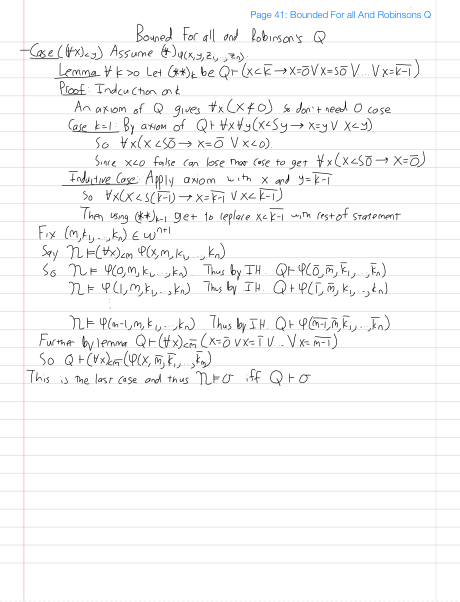 Page 41: Bounded For all And Robinsons Q
Bouned For all and Robinson's Q
-Case (∀x)<y) Assume (*)φ(x,y,z₁,...,zₙ)
Lemma ∀ k>0 Let (**)ₖ be Q⊢(x<k̄→x=0̄∨x=S0̄∨...∨x=k-1)
Proof: Induction on k
An axiom of Q gives ∀x(x≮0) so don't need 0 case
Case k=1: By axiom of Q⊢∀x∀y(x<Sy→x=y∨x<y)
So ∀x(x<S0̄→x=0̄ ∨x<0)
Since x<0 false can lose that case to get ∀x(x<S0̄→x=0̄)
Inductive Case: Apply axiom with x and y=k-1
So ∀x(x<S(k-1)→x=k-1 ∨x<k-1)
Then using (**)ₖ₋₁ get to replace x<k-1 with rest of statement
Fix (m,k₁,...,kₙ)∈ωⁿ⁺¹
Say 𝔑⊨(∀x)<m φ(x,m,k₁,...,kₙ)
So 𝔑⊨φ(0,m,k₁,...,kₙ) Thus by IH. Q⊢φ(0̄,m̄,k̄₁,...,k̄ₙ)
𝔑⊨φ(1,m,k₁,...,kₙ) Thus by IH. Q⊢φ(1̄,m̄,k̄₁,...,k̄ₙ)
⋮
𝔑⊨φ(m-1,m,k₁,...,kₙ) Thus by IH. Q⊢φ(m-1,m̄,k̄₁,...,k̄ₙ)
Further by lemma Q⊢(∀x)<m̄ (x=0̄∨x=1̄∨...∨x=m-1)
So Q⊢(∀x)<m̄(φ(x,m̄,k̄₁,...,k̄ₙ)
This is the last case and thus 𝔑⊨σ iff Q⊢σ